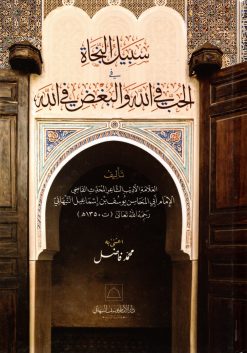 سبيل النجاة
في
الحب في الله والبغض في الله
تأليف
العلامة الأديب الشاعر المحدث القاضي
الإمام أبي المحاسن يوسف بن إسماعيل النبهاني
رحمه الله تعالى (ت ١٣٥٠ هـ)
اعتنى به
محمد فاضل
دار الإمام يوسف النبهاني